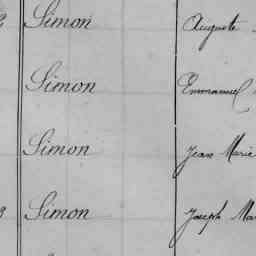 Simon Auguste
Simon Emmanuel
Simon Jean Marie
3 Simon Joseph Mar